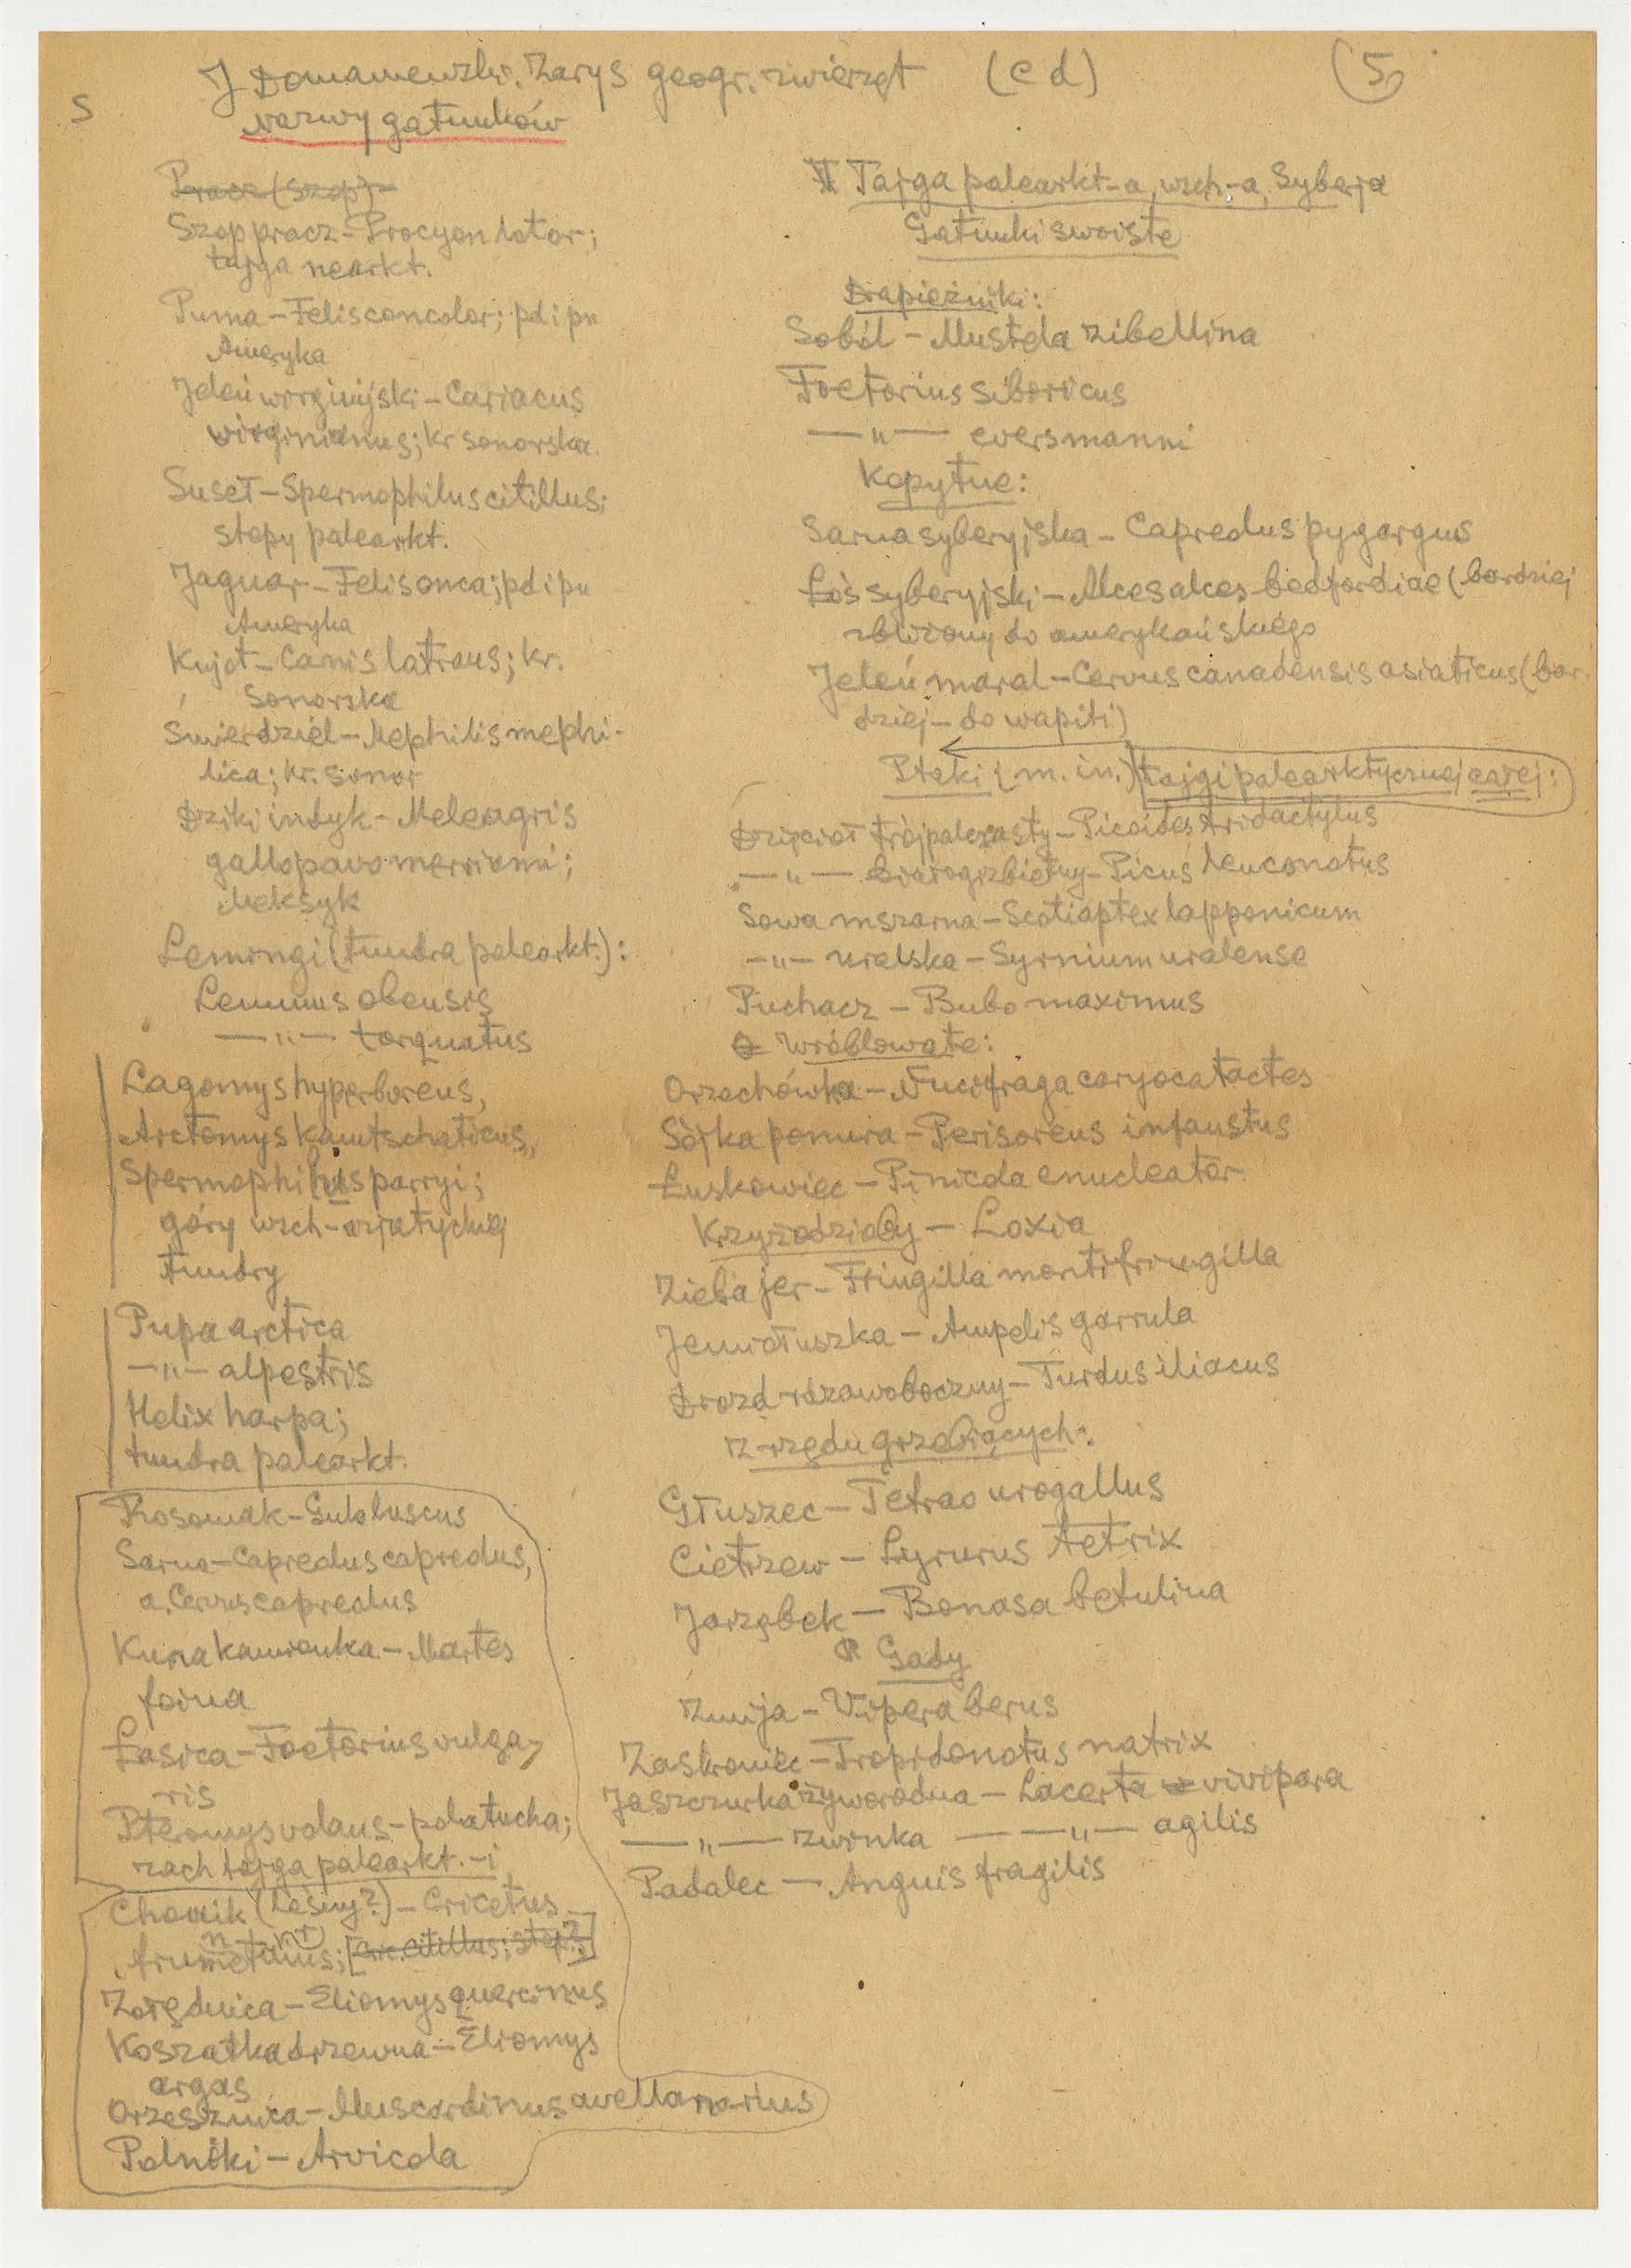 J Domaniewski. Zarys geogr. zwierząt (c d) (5)
S
nazwy gatunków
Pracz (szop) -
Szop pracz - Procyon lotor;
tajga nearkt.
Puma - Felis concolor; pd i pn
Ameryka
Jeleń wirginijski - Cariacus
virginianus; kr sonorska.
Suseł - Spermophilus citillus;
stepy palearkt.
Jaguar - Felis onca; pd i pn
Ameryka
Kujot - Canis latrans; kr.
Sonorska
Śmierdziel - Mephitis mephi-
tica; kr. sonor
Dziki indyk - Meleagris
gallopavo merriami;
Meksyk
Lemingi (tundra palearkt.):
Lemmus obensis
—"— torquatus
Lagomys hyperboreus,
Arctomys kamtschaticus,,
Spermophilus parryi;
góry wsch-azjatyckiej
tundry
Pupa arctica
—"— alpestris
Helix harpa;
tundra palearkt.
Rosomak - Gulo luscus
Sarna - Capreolus capreolus,
a. Cervus capreolus
Kuna kamionka - Martes
foina
Łasica - Foetorius vulga-
ris
Pteromys volans - polatucha;
zach tajga palearkt. -i
Chomik (Leśny?) - Cricetus
frumetanus; [Cric. citillus; step?]
m nt
Żołędnica - Eliomys quercinus
Koszatka drzewna - Eliomys
argas
Orzesznica - Muscardinus avellanarius
Polniki - Arvicola
II Tajga palearkt-a, wsch-a, Syberja
Gatunki swoiste
Drapieżniki:
Soból - Mustela zibellina
Foetorius sibiricus
—"— eversmanni
Kopytne:
Sarna syberyjska - Capreolus pygargus
Łoś syberyjski - Alces alces bedfordiae (bardziej
zbliżony do amerykańskiego
Jeleń maral - Cervus canadensis asiaticus (bar-
dziej - do wapiti)
Ptaki (m. in.) tajgi palearktycznej całej:
Dzięcioł trójpalczasty - Picoides tridactylus
—"— białogrzbietny - Picus leuconotus
Sowa mszarna - Scotiaptex lapponicum
—"— uralska - Syrnium uralense
Puchacz - Bubo maximus
Wróblowate:
Orzechówka - Nucifraga caryocatactes
Sójka ponura - Perisoreus infaustus
Łuskowiec - Pinicola enucleator
Krzyżodzioby - Loxia
Zięba jer - Fringilla montifringilla
Jemiołuszka - Ampelis garrula
Drozd rdzawoboczny - Turdus iliacus
z rzędu grzebiących:
Głuszec - Tetrao urogallus
Cietrzew - Lyrurus tetrix
Jarząbek - Bonasa betulina
Gady
Żmija - Vipera berus
Zaskroniec - Tropidonotus natrix
Jaszczurka żyworodna - Lacerta vivipara
—"— zwinka — —"— agilis
Padalec - Anguis fragilis